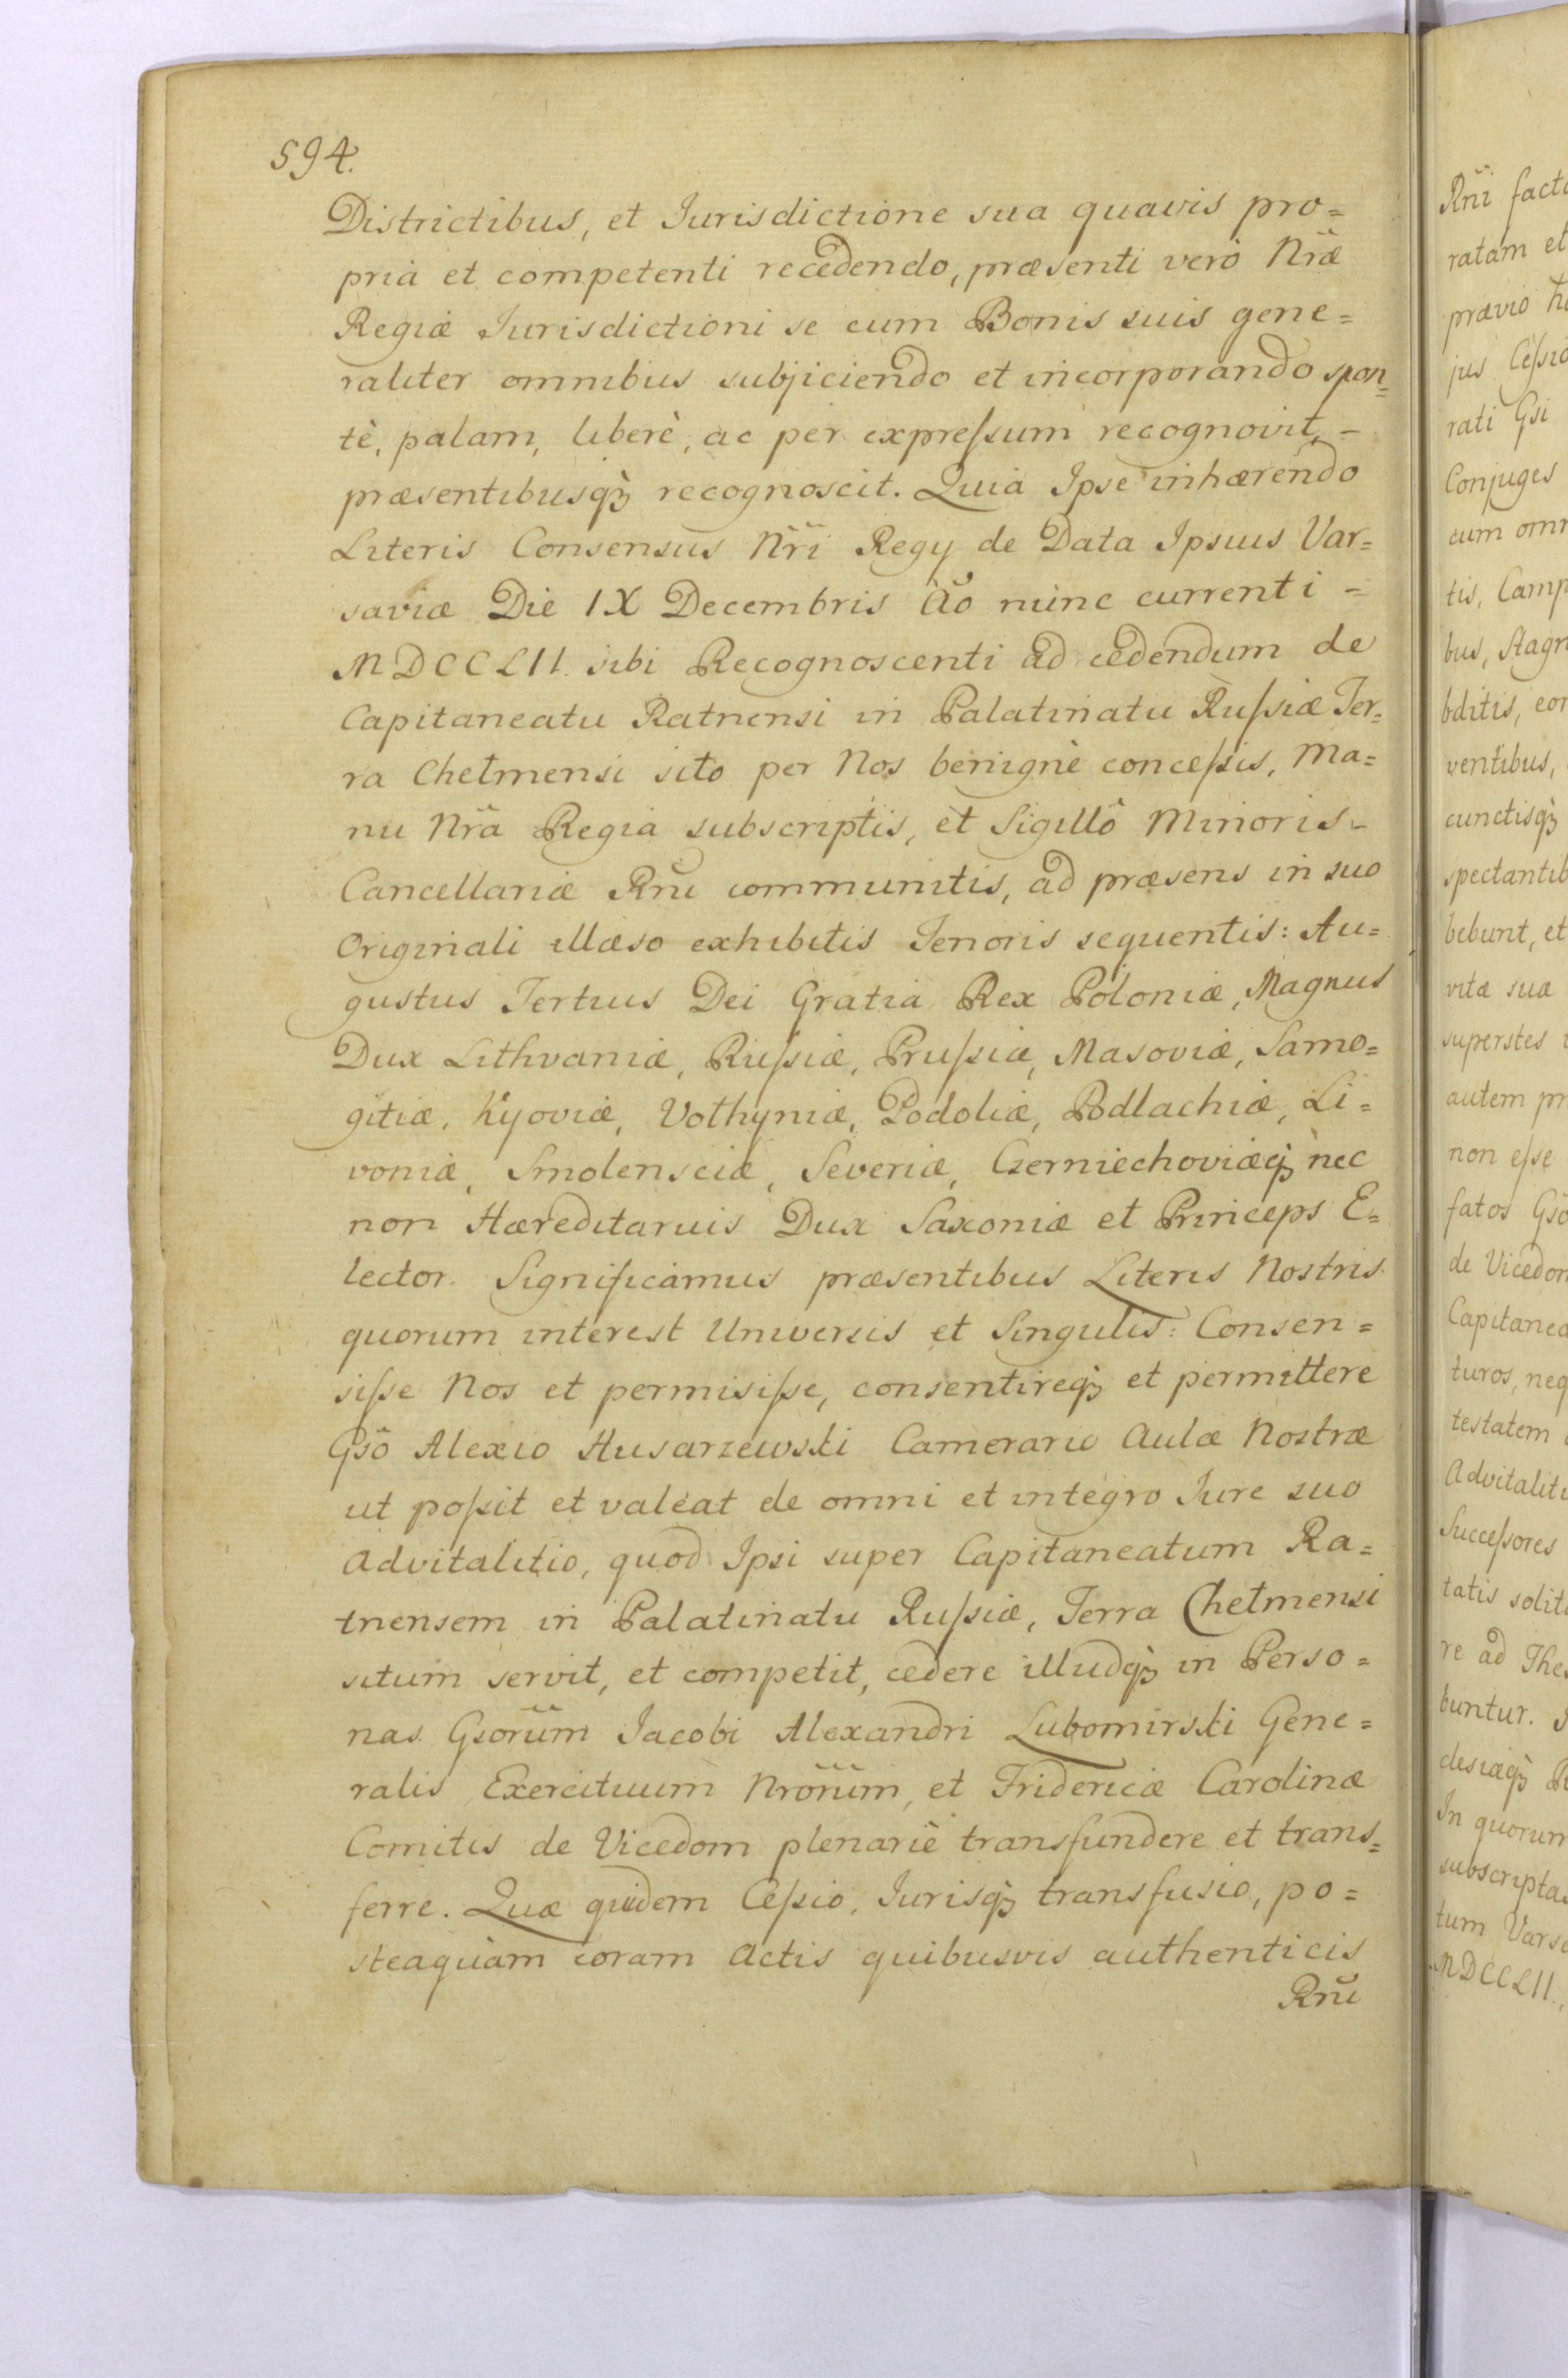 594.
Districtibus, et Iurisdictione sua quavis pro=
pria et competenti recedendo, præsenti verò Nr̃æ
Regiæ Iurisdictioni se cum Bonis suis gene=
raliter omnibus subjiciendo et incorporando spon=
tè, palam, liberè, ac per expreſsum recognovit, =
præsentibusq̃ recognoscit. Quia Ipse inhærendo
Literis Consensus Nr̃i Regy de Data Ipsius Var=
saviæ Die IX Decembris Ão nunc currenti =
MDCCLII. sibi Recognoscenti ad cedendum de
Capitaneatu Ratnensi in Palatinatu Ruſsiæ Ter=
ra Chełmensi sito per Nos benignè conceſsis, Ma=
nu Nr̃a Regia subscriptis, et Sigillô Minoris =
Cancellariæ Rñi communitis, ad præsens in suo
Originali illæso exhibitis Tenoris sequentis: Au=
gustus Tertius Dei Gratia Rex Poloniæ, Magnus
Dux Lithvaniæ, Ruſsiæ, Pruſsiæ, Masoviæ, Samo=
gitiæ, Kÿoviæ, Vołhyniæ, Podoliæ, Podlachiæ, Li=
voniæ, Smolensciæ, Severiæ, Czerniechoviæq̃ nec
non Hæreditarius Dux Saxoniæ et Princeps E=
lector. Significamus præsentibus Literis Nostris
quorum interest Universis et Singulis: Consen=
siſse Nos et permisiſse, consentireq̃ et permittere
Gsõ Alexio Husarzewski Camerario Aulæ Nostræ
ut poſsit et valeat de omni et integro Iure suo
Advitalitio, quod Ipsi super Capitaneatum Ra=
tnensem in Palatinatu Ruſsiæ, Terra Chełmensi
situm servit, et competit, cedere illudq̃ in Perso=
nas Gsorũm Iacobi Alexandri Lubomirski Gene=
ralis Exercituum Nrõrũm, et Fridericæ Carolinæ
Comitis de Vicedom plenariè transfundere et trans=
ferre. Quæ quidem Ceſsio, Iurisq̃ transfusio, po=
steaquàm coram Actis quibusvis authenticis
Rñi
Rñi
ratam et
prævio
jus
rati Gsi
Conjuges
cum
tis,
bus,
bditis,
ventibus,
cunctisq̃
bebunt, et
vitæ suæ
superstes
autem
non eſse
fatos
de
turos,
testatem
Succeſsores
tatis
re ad
buntur.
In quorum
tum
MDCCLII.